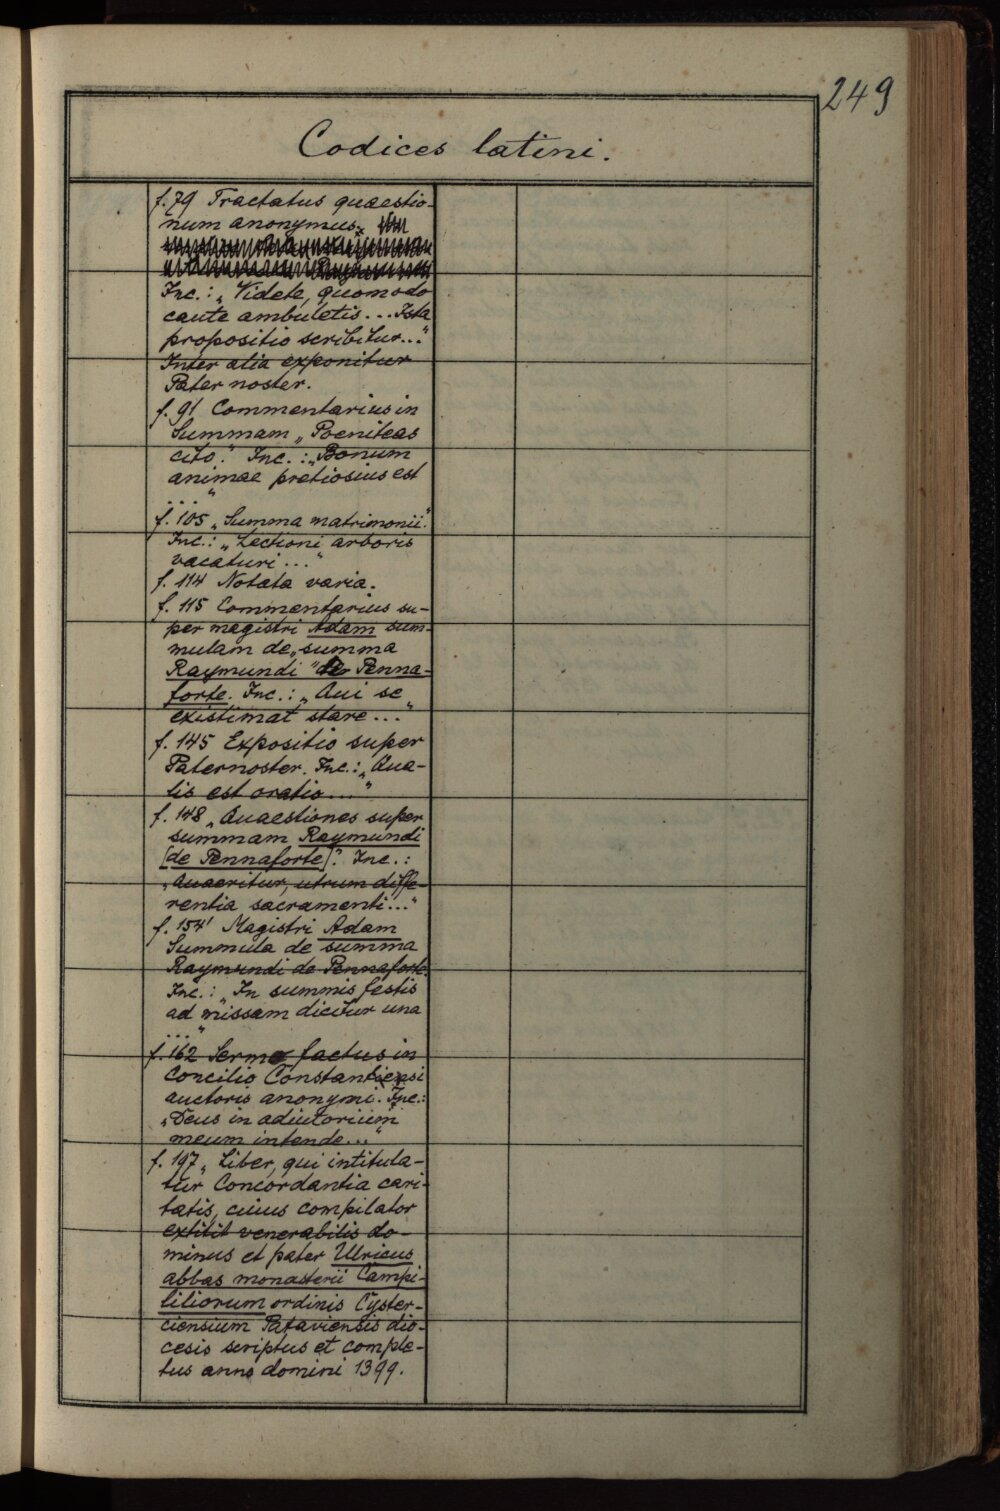 249
Codices latini.
f. 79 Tractatus quaestio-
num anonymus.
Inc.: „Videte, quomodo
caute ambuletis... Ista
propositio scribitur..."
Inter alia exponitur
Pater noster.
f. 91 Commentarius in
Summam „Poeniteas
cito." Inc.: „Bonum
animae pretiosius est
..."
f. 105 „Summa matrimonii."
Inc.: „Lectioni arboris
vacaturi..."
f. 114 Notata varia.
f. 115 Commentarius su-
per magistri Adam sum-
mulam de „summa
Raymundi" de Penna-
forte. Inc.: „Qui se
existimat stare..."
f. 145 Expositio super
Paternoster. Inc.: „Qua-
lis est oratio..."
f. 148 „Quaestiones super
summam Raymundi
[de Pennaforte]". Inc.:
„Quaeritur, utrum diffe-
rentia sacramenti..."
f. 154' Magistri Adam
Summula de summa
Raymundi de Pennaforte.
Inc.: „In summis festis
ad missam dicitur una
..."
f. 162 Sermo factus in
Concilio Constantiensi
auctoris anonymi. Inc.:
„Deus in adiutorium
meum intende..."
f. 197 „Liber, qui intitula-
tur Concordantia cari-
tatis, cuius compilator
extitit venerabilis do-
minus et pater Ulricus
abbas monasterii Campi-
liliorum ordinis Cyster-
ciensium Pataviensis dio-
cesis scriptus et comple-
tus anno domini 1399.